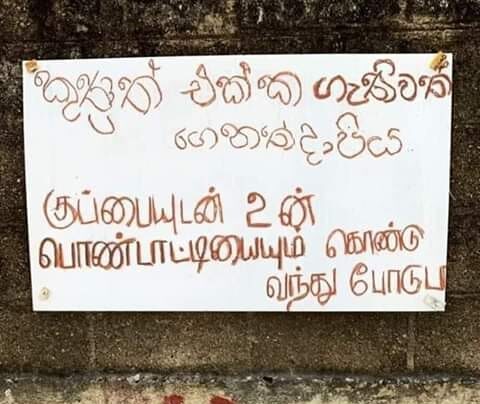 කුණුත් එක්ක ගෑනිවත්
ගෙනත් දාපිය
குப்பையுடன் உன்
பொண்பாட்டியையும் கொண்டு
வந்து போடுப